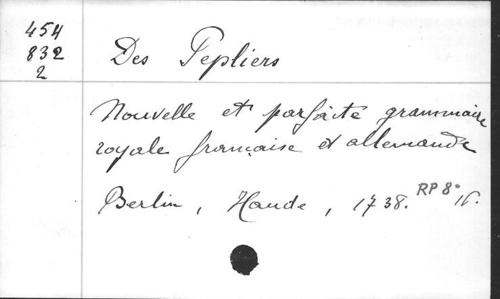 454
832
2
Des Pepliers
Nouvelle et parfaite grammaire
royale française et allemande
Berlin, Haude, 1738. RP 8°